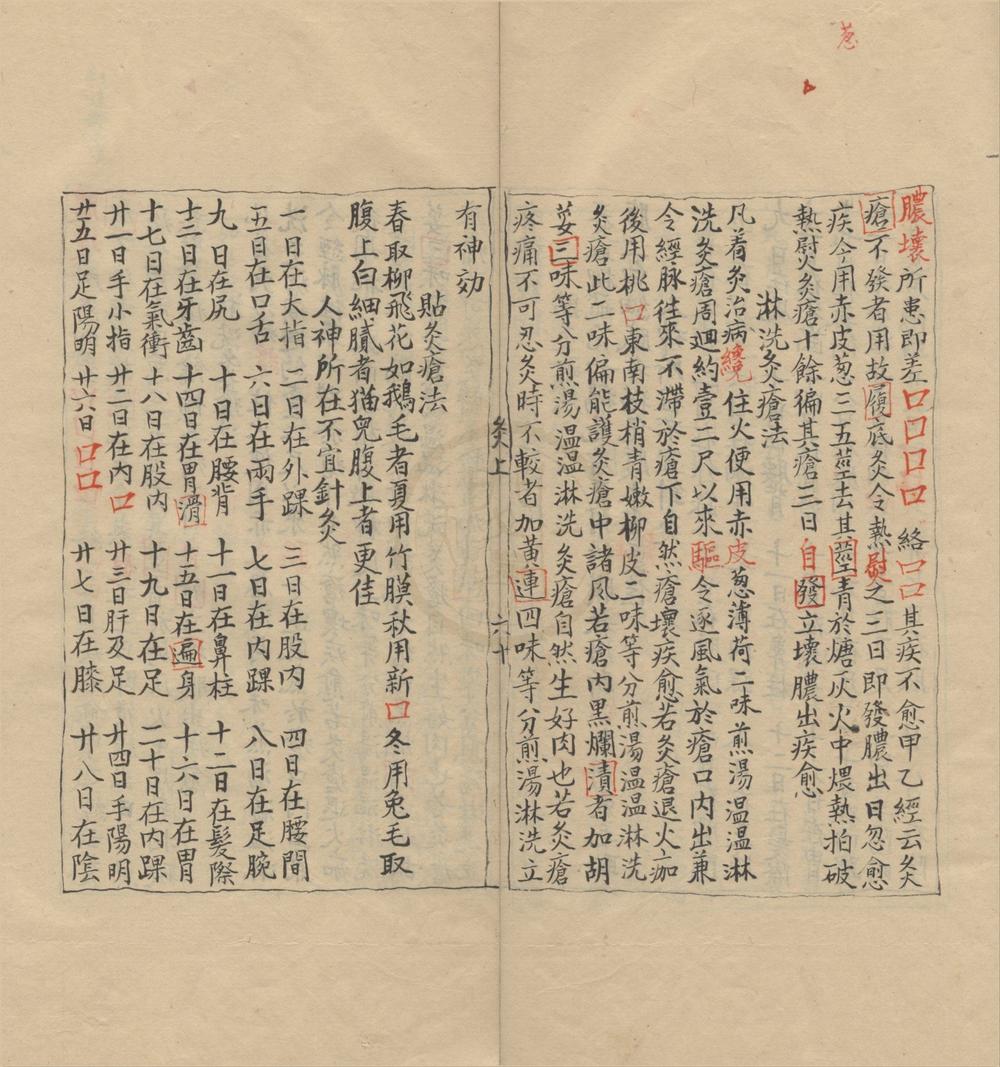 葱
膿壞所患即差口口口口絡口口其疾不愈甲乙經云灸
瘡不發者用故履底灸令熱熨之三日即發膿出日忽愈
疾今用赤皮葱三五莖去其莖青於煻灰火中煨熱拍破
熱熨灸瘡十餘徧其瘡三日自發立壞膿出疾愈
淋洗灸瘡法
凡着灸治病纔住火便用赤皮葱薄荷二味煎湯温温淋
洗灸瘡周迴約壹二尺以來驅令逐風氣於瘡口内出兼
令經脉往來不滯於瘡下自然瘡壞疾愈若灸瘡退火痂
後用桃口東南枝梢青嫩柳皮二味等分煎湯温温淋洗
灸瘡此二味偏能護灸瘡中諸風若瘡内黒爛漬者加胡
荽三味等分煎湯温温淋洗灸瘡自然生好肉也若灸瘡
疼痛不可忍灸時不較者加黄連四味等分煎湯淋洗立
灸上 六十
有神効
貼灸瘡法
春取柳飛花如鵝毛者夏用竹膜秋用新口冬用兔毛取
腹上白細膩者猫兒腹上者更佳
人神所在不宜針灸
一日在大指 二日在外踝 三日在股内 四日在腰間
五日在口舌 六日在兩手 七日在内踝 八日在足腕
九日在尻 十日在腰背 十一日在鼻柱 十二日在髮際
十三日在牙齒 十四日在胃滑 十五日在遍身 十六日在胃
十七日在氣衝 十八日在股内 十九日在足 二十日在内踝
廿一日手小指 廿二日在内口 廿三日肝及足 廿四日手陽明
廿五日足陽明 廿六日口口 廿七日在膝 廿八日在陰